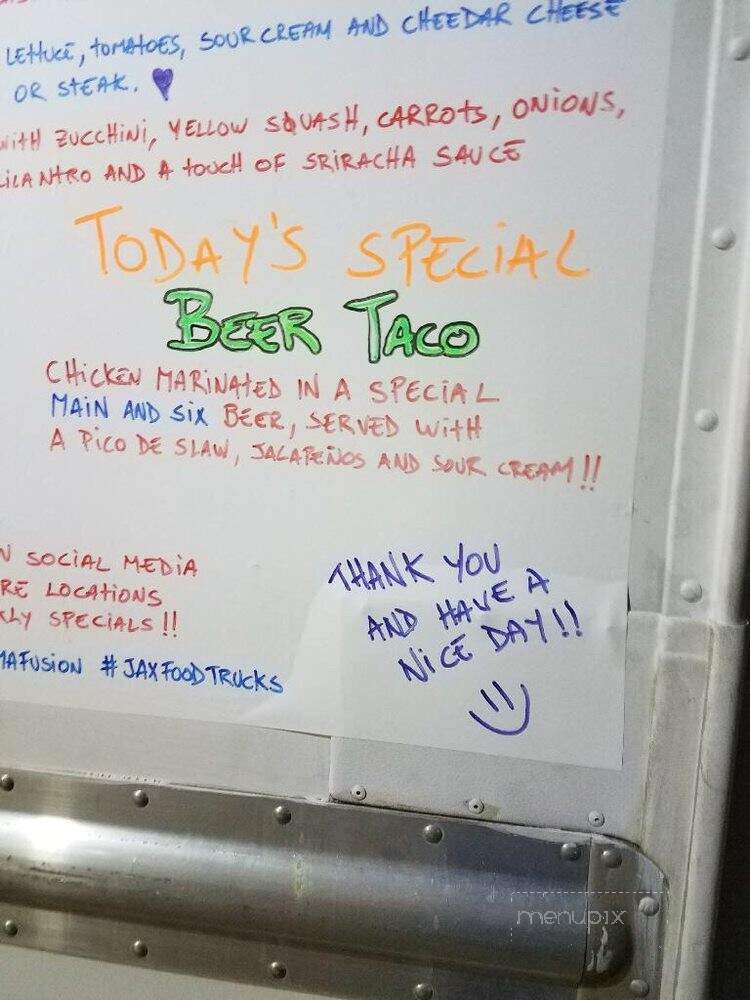 LETTUCE, TOMATOES, SOUR CREAM AND CHEEDAR CHEESE
OR STEAK.
WITH ZUCCHINI, YELLOW SQUASH, CARROTS, ONIONS,
CILANTRO AND A TOUCH OF SRIRACHA SAUCE
TODAY'S SPECIAL
BEER TACO
CHICKEN MARINATED IN A SPECIAL
MAIN AND SIX BEER, SERVED WITH
A PICO DE SLAW, JALAPEÑOS AND SOUR CREAM!!
N SOCIAL MEDIA
RE LOCATIONS
KLY SPECIALS!!
MAFUSION #JAXFOODTRUCKS
THANK YOU
AND HAVE A
NICE DAY!!
menupix